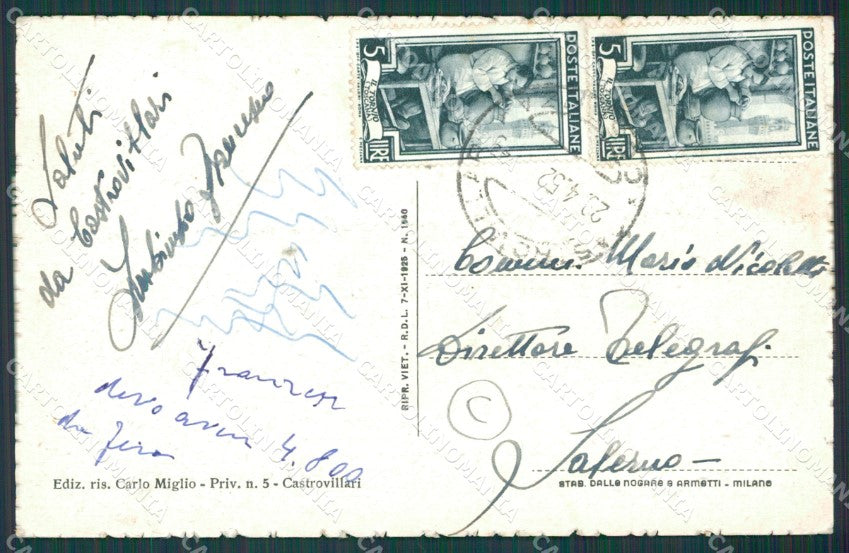 Saluti
da Castrovillari
Francesco
devo avere 4.800
da
Ediz. ris. Carlo Miglio - Priv. n. 5 - Castrovillari
RIPR. VIET. - R.D.L. 7-XI-1925 - N. 1840
5
POSTE ITALIANE
IL TORNIO
LIRE
5
POSTE ITALIANE
IL TORNIO
LIRE
22.4.52
Comm. Mario
Direttore Telegraf.
Salerno -
C
STAB. DALLE NOGARE & ARMETTI - MILANO
CARTOLINOMANIA